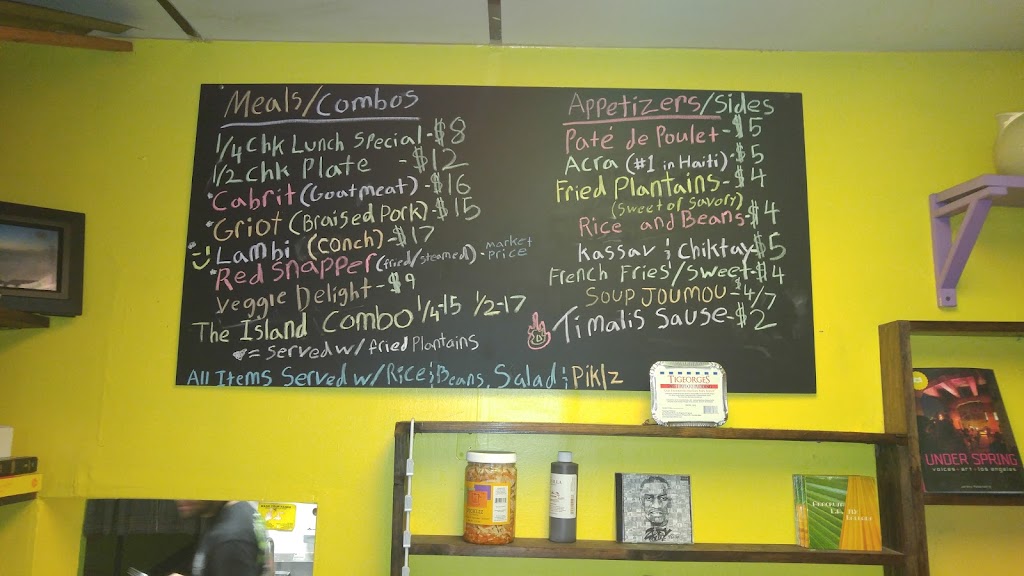 Meals/Combos
1/4 Chk Lunch Special-$8
1/2 Chk Plate -$12
*Cabrit (Goatmeat)-$16
*Griot (Braised Pork)-$15
Lambi (conch)-$17
*Red Snapper (fried/steamed)-market price
Veggie Delight-$9
The Island Combo 1/4-15 1/2-17
= served w/ fried Plantains
All Items Served w/ Rice & Beans, Salad & Piklz
Appetizers/Sides
Paté de Poulet-$5
Acra (#1 in Haiti)-$5
Fried Plantains-$4
(sweet or savory)
Rice and Beans-$4
Kassav & Chiktay $5
French Fries/Sweet-$4
Soup Joumou-4/7
Timalis Sause-$2
TIGEORGES
UNDER SPRING
voices·art·los angeles